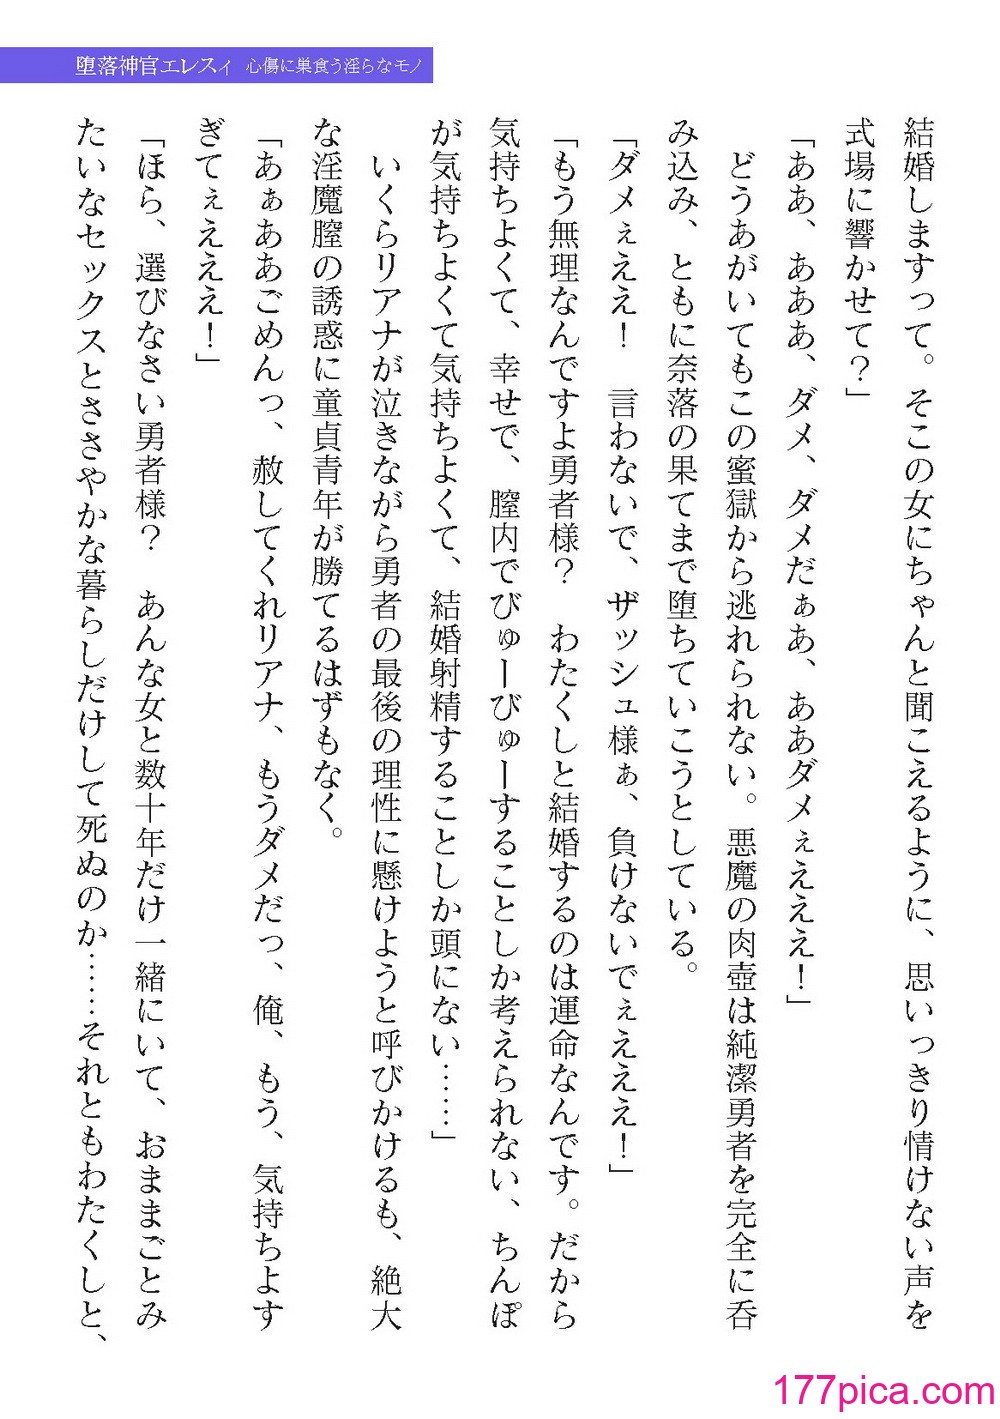 堕落神官エレスィ 心傷に巣食う淫らなモノ
結婚しますって。そこの女にちゃんと聞こえるように、思いっきり情けない声を
式場に響かせて？」
「ああ、あああ、ダメ、ダメだぁあ、ああダメぇえええ！」
どうあがいてもこの蜜獄から逃れられない。悪魔の肉壺は純潔勇者を完全に呑
み込み、ともに奈落の果てまで堕ちていこうとしている。
「ダメぇええ！　言わないで、ザッシュ様ぁ、負けないでぇえええ！」
「もう無理なんですよ勇者様？　わたくしと結婚するのは運命なんです。だから
気持ちよくて、幸せで、膣内でびゅーびゅーすることしか考えられない、ちんぽ
が気持ちよくて気持ちよくて、結婚射精することしか頭にない……」
いくらリアナが泣きながら勇者の最後の理性に懸けようと呼びかけるも、絶大
な淫魔膣の誘惑に童貞青年が勝てるはずもなく。
「あぁああごめんっ、赦してくれリアナ、もうダメだっ、俺、もう、気持ちよす
ぎてぇえええ！」
「ほら、選びなさい勇者様？　あんな女と数十年だけ一緒にいて、おままごとみ
たいなセックスとささやかな暮らしだけして死ぬのか……それともわたくしと、
177pica.com